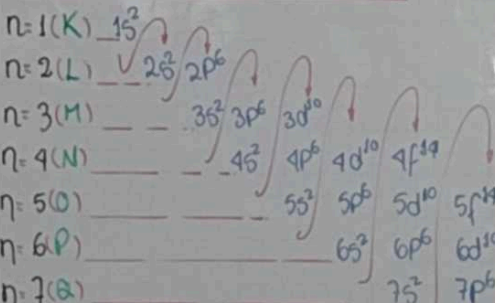 n=1(K) 1s²
n=2(L) 2s² 2p⁶
n=3(M) 3s² 3p⁶ 3d¹⁰
n=4(N) 4s² 4p⁶ 4d¹⁰ 4f¹⁴
n=5(O) 5s² 5p⁶ 5d¹⁰ 5f¹⁴
n=6(P) 6s² 6p⁶ 6d¹⁰
n=7(Q) 7s² 7p⁶